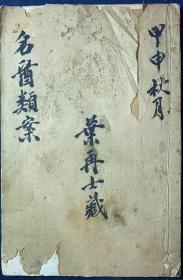 甲申秋月
葉再士藏
名醫類案